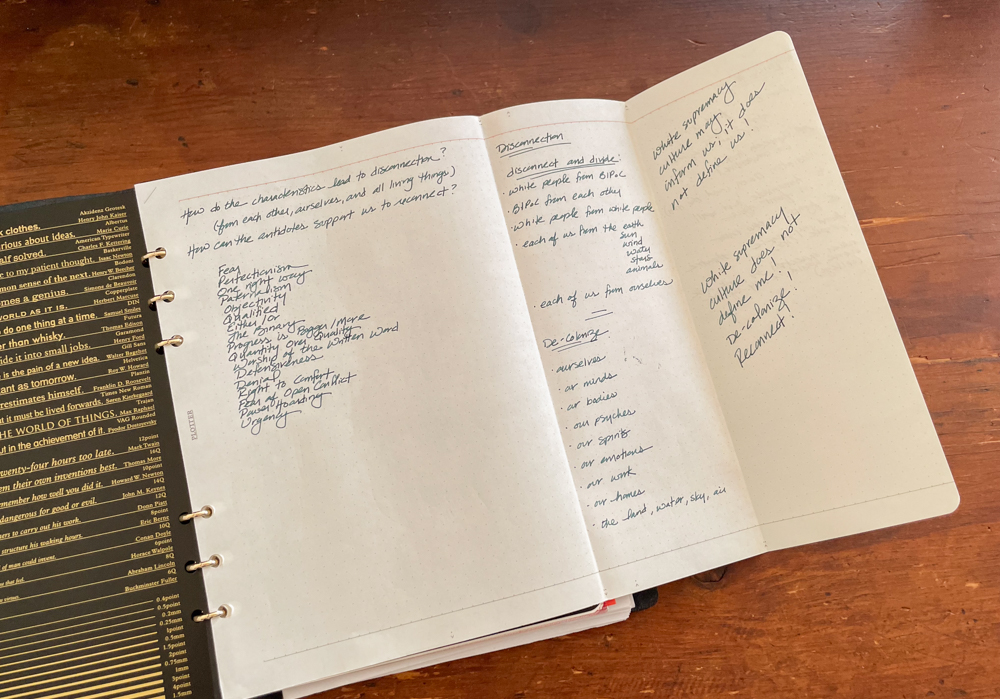 k clothes.
Akzidenz Grotesk
Henry John Kaiser
rious about ideas.
Albertus
Marie Curie
alf solved.
American Typewriter
Charles F. Kettering
e to my patient thought.
Baskerville
Isaac Newton
mon sense of the next.
Bodoni
Henry W. Beecher
omes a genius.
Clarendon
Simone de Beauvoir
WORLD AS IT IS.
Copperplate
Herbert Marcuse
o do one thing at a time.
DIN
Samuel Smiles
er than whisky.
Futura
Thomas Edison
ide it into small jobs.
Garamond
Henry Ford
is the pain of a new idea.
Gill Sans
Walter Bagehot
ant as tomorrow.
Helvetica
Roy W. Howard
restimates himself.
Plantin
Franklin D. Roosevelt
it must be lived forwards.
Times New Roman
Søren Kierkegaard
THE WORLD OF THINGS.
Trajan
Max Raphael
ut in the achievement of it.
VAG Rounded
Fyodor Dostoevsky
wenty-four hours too late.
12point
Mark Twain
em their own inventions best.
16Q
Thomas More
remember how well you did it.
10point
Howard W. Newton
dangerous for good or evil.
14Q
John M. Keynes
ers to carry out his work.
12Q
Donn Piatt
structure his waking hours.
8point
Eric Berne
of man could invent.
10Q
Conan Doyle
6point
Horace Walpole
8Q
Abraham Lincoln
6Q
Buckminster Fuller
0.4point
0.5point
0.2mm
0.25mm
1point
0.5mm
1.5point
2point
0.75mm
1mm
3point
4point
1.5mm
PLOTTER
How do the characteristics lead to disconnection?
(from each other, ourselves, and all living things)
How can the antidotes support us to reconnect?
Fear
Perfectionism
One right way
Paternalism
Objectivity
Qualified
Either/or
The Binary
Progress is Bigger/More
Quantity over Quality
Worship of the Written Word
Defensiveness
Denial
Right to Comfort
Fear of Open Conflict
Power Hoarding
Urgency
Disconnection
disconnect and divide:
· white people from BIPoC
· BIPoC from each other
· white people from white people
· each of us from the earth
sun
wind
water
stars
animals
· each of us from ourselves
De-colonize
· ourselves
· our minds
· our bodies
· our psyches
· our spirits
· our emotions
· our work
· our homes
· the land, water, sky, air
white supremacy
culture may
inform us; it does
not define us!
white supremacy
culture does not
define me!
De-colonize!
Reconnect!